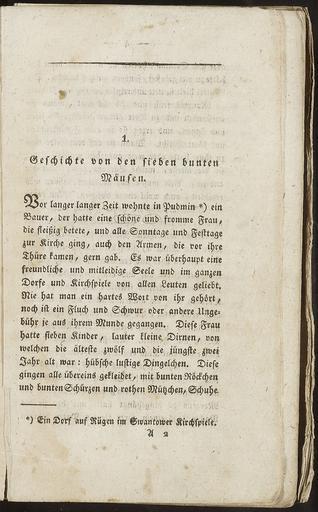 1.
Geschichte von den sieben bunten
Mäusen.
Vor langer langer Zeit wohnte in Pudmin *) ein
Bauer, der hatte eine schöne und fromme Frau,
die fleißig betete, und alle Sonntage und Festtage
zur Kirche ging, auch den Armen, die vor ihre
Thüre kamen, gern gab. Es war überhaupt eine
freundliche und mitleidige Seele und im ganzen
Dorfe und Kirchspiele von allen Leuten geliebt.
Nie hat man ein hartes Wort von ihr gehört,
noch ist ein Fluch und Schwur oder andere Unge-
bühr je aus ihrem Munde gegangen. Diese Frau
hatte sieben Kinder, lauter kleine Dirnen, von
welchen die älteste zwölf und die jüngste zwei
Jahr alt war: hübsche lustige Dingelchen. Diese
gingen alle übereins gekleidet, mit bunten Röckchen
und bunten Schürzen und rothen Mützchen, Schuhe
*) Ein Dorf auf Rügen im Swantower Kirchspiele.
A 2